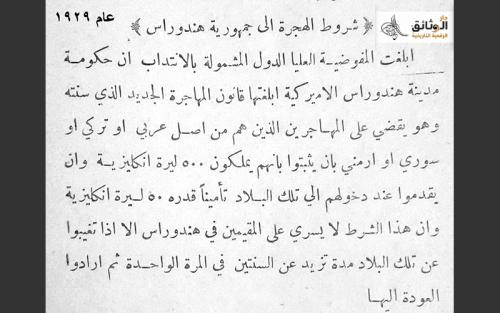 عام ١٩٢٩
دار
الوثائق
الرقمية التاريخية
﴿ شروط الهجرة الى جمهورية هندوراس ﴾
ابلغت المفوضية العليا الدول المشمولة بالانتداب أن حكومة
مدينة هندوراس الاميركية ابلغتها قانون المهاجرة الجديد الذي سنته
وهو يقضي على المهاجرين الذين هم من اصل عربي او تركي او
سوري او ارمني بان يثبتوا بانهم يملكون ٥٠٠ ليرة انكليزية وان
يقدموا عند دخولهم الي تلك البلاد تأميناً قدره ٥٠ ليرة انكليزية
وان هذا الشرط لا يسري على المقيمين في هندوراس الا اذا تغيبوا
عن تلك البلاد مدة تزيد عن السنتين في المرة الواحدة ثم ارادوا
العودة اليها